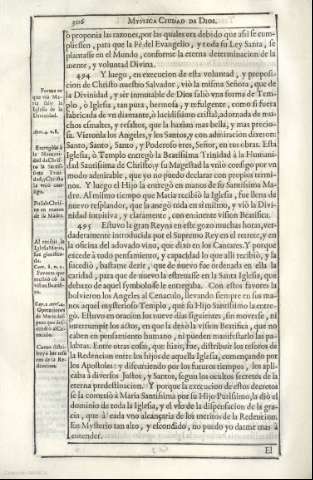 306 MYSTICA CIUDAD DE DIOS.
ò proponia las razones, por las quales era debido que assi se cum-
pliessen, para que la Fè del Evangelio, y toda su Ley Santa, se
plantasse en el Mundo, conforme la eterna determinacion de la
mente, y voluntad Divina.
494 Y luego, en execucion de esta voluntad, y proposi-
cion de Christo nuestro Salvador, viò la misma Señora, que de
la Divinidad, y sèr inmutable de Dios saliò vna forma de Tem-
plo, ò Iglesia, tan pura, hermosa, y refulgente, como si fuera
fabricada de vn diamante, ò lucidissimo cristal, adornada de mu-
chos esmaltes, y resaltos, que la hazian mas bella, y mas precio-
sa. Vieronla los Angeles, y los Santos, y con admiracion dixeron:
Santo, Santo, Santo, y Poderoso eres, Señor, en tus obras. Esta
Iglesia, ò Templo entregò la Beatissima Trinidad à la Humani-
dad Santissima de Christo; y su Magestad la vniò consigo por vn
modo admirable, que yo no puedo declarar con propios termi-
nos. Y luego el Hijo la entregò en manos de su Santissima Ma-
dre. Al mismo tiempo que Maria recibiò la Iglesia, fue llena de
nuevo resplandor, que la anegò toda en sì mismo, y viò la Divi-
nidad intuitiva, y claramente, con eminente vision Beatifica.
495 Estuvo la gran Reyna en este gozo muchas horas, ver-
daderamente introducida por el Supremo Rey en el retrete, y en
la oficina del adovado vino, que dixo en los Cantares. Y porque
excede à todo pensamiento, y capacidad lo que alli recibiò, y la
sucediò, bastarè dezir, que de nuevo fue ordenada en ella la
caridad, para que de nuevo la estrenasse en la Santa Iglesia, que
debaxo de aquel symbolo se le entregaba. Con estos favores la
bolvieron los Angeles al Cenaculo, llevando siempre en sus ma-
nos aquel mysterioso Templo, que su Hijo Santissimo la entre-
gò. Estuvo en oracion los nueve dias siguientes, sin moverse, ni
interrumpir los actos, en que la dexò la vision Beatifica, que no
caben en pensamiento humano, ni pueden manifestarlo las pa-
labras. Entre otras cosas, que hizo, fue, distribuir los tesoros de
la Redencion entre los hijos de aquella Iglesia, començando por
los Apostoles: y discurriendo por los futuros tiempos, los apli-
caba à diversos Justos, y Santos, segun los ocultos secretos de la
eterna predestinacion. Y porque la execucion de estos decretos
se la cometiò à Maria Santissima por su Hijo Purissimo, la diò el
dominio de toda la Iglesia, y el vso de la dispensacion de la gra-
cia, que à cada vno alcançaria de los meritos de la Redencion.
En Mysterio tan alto, y escondido, no puedo yo darme mas à
entender.
El